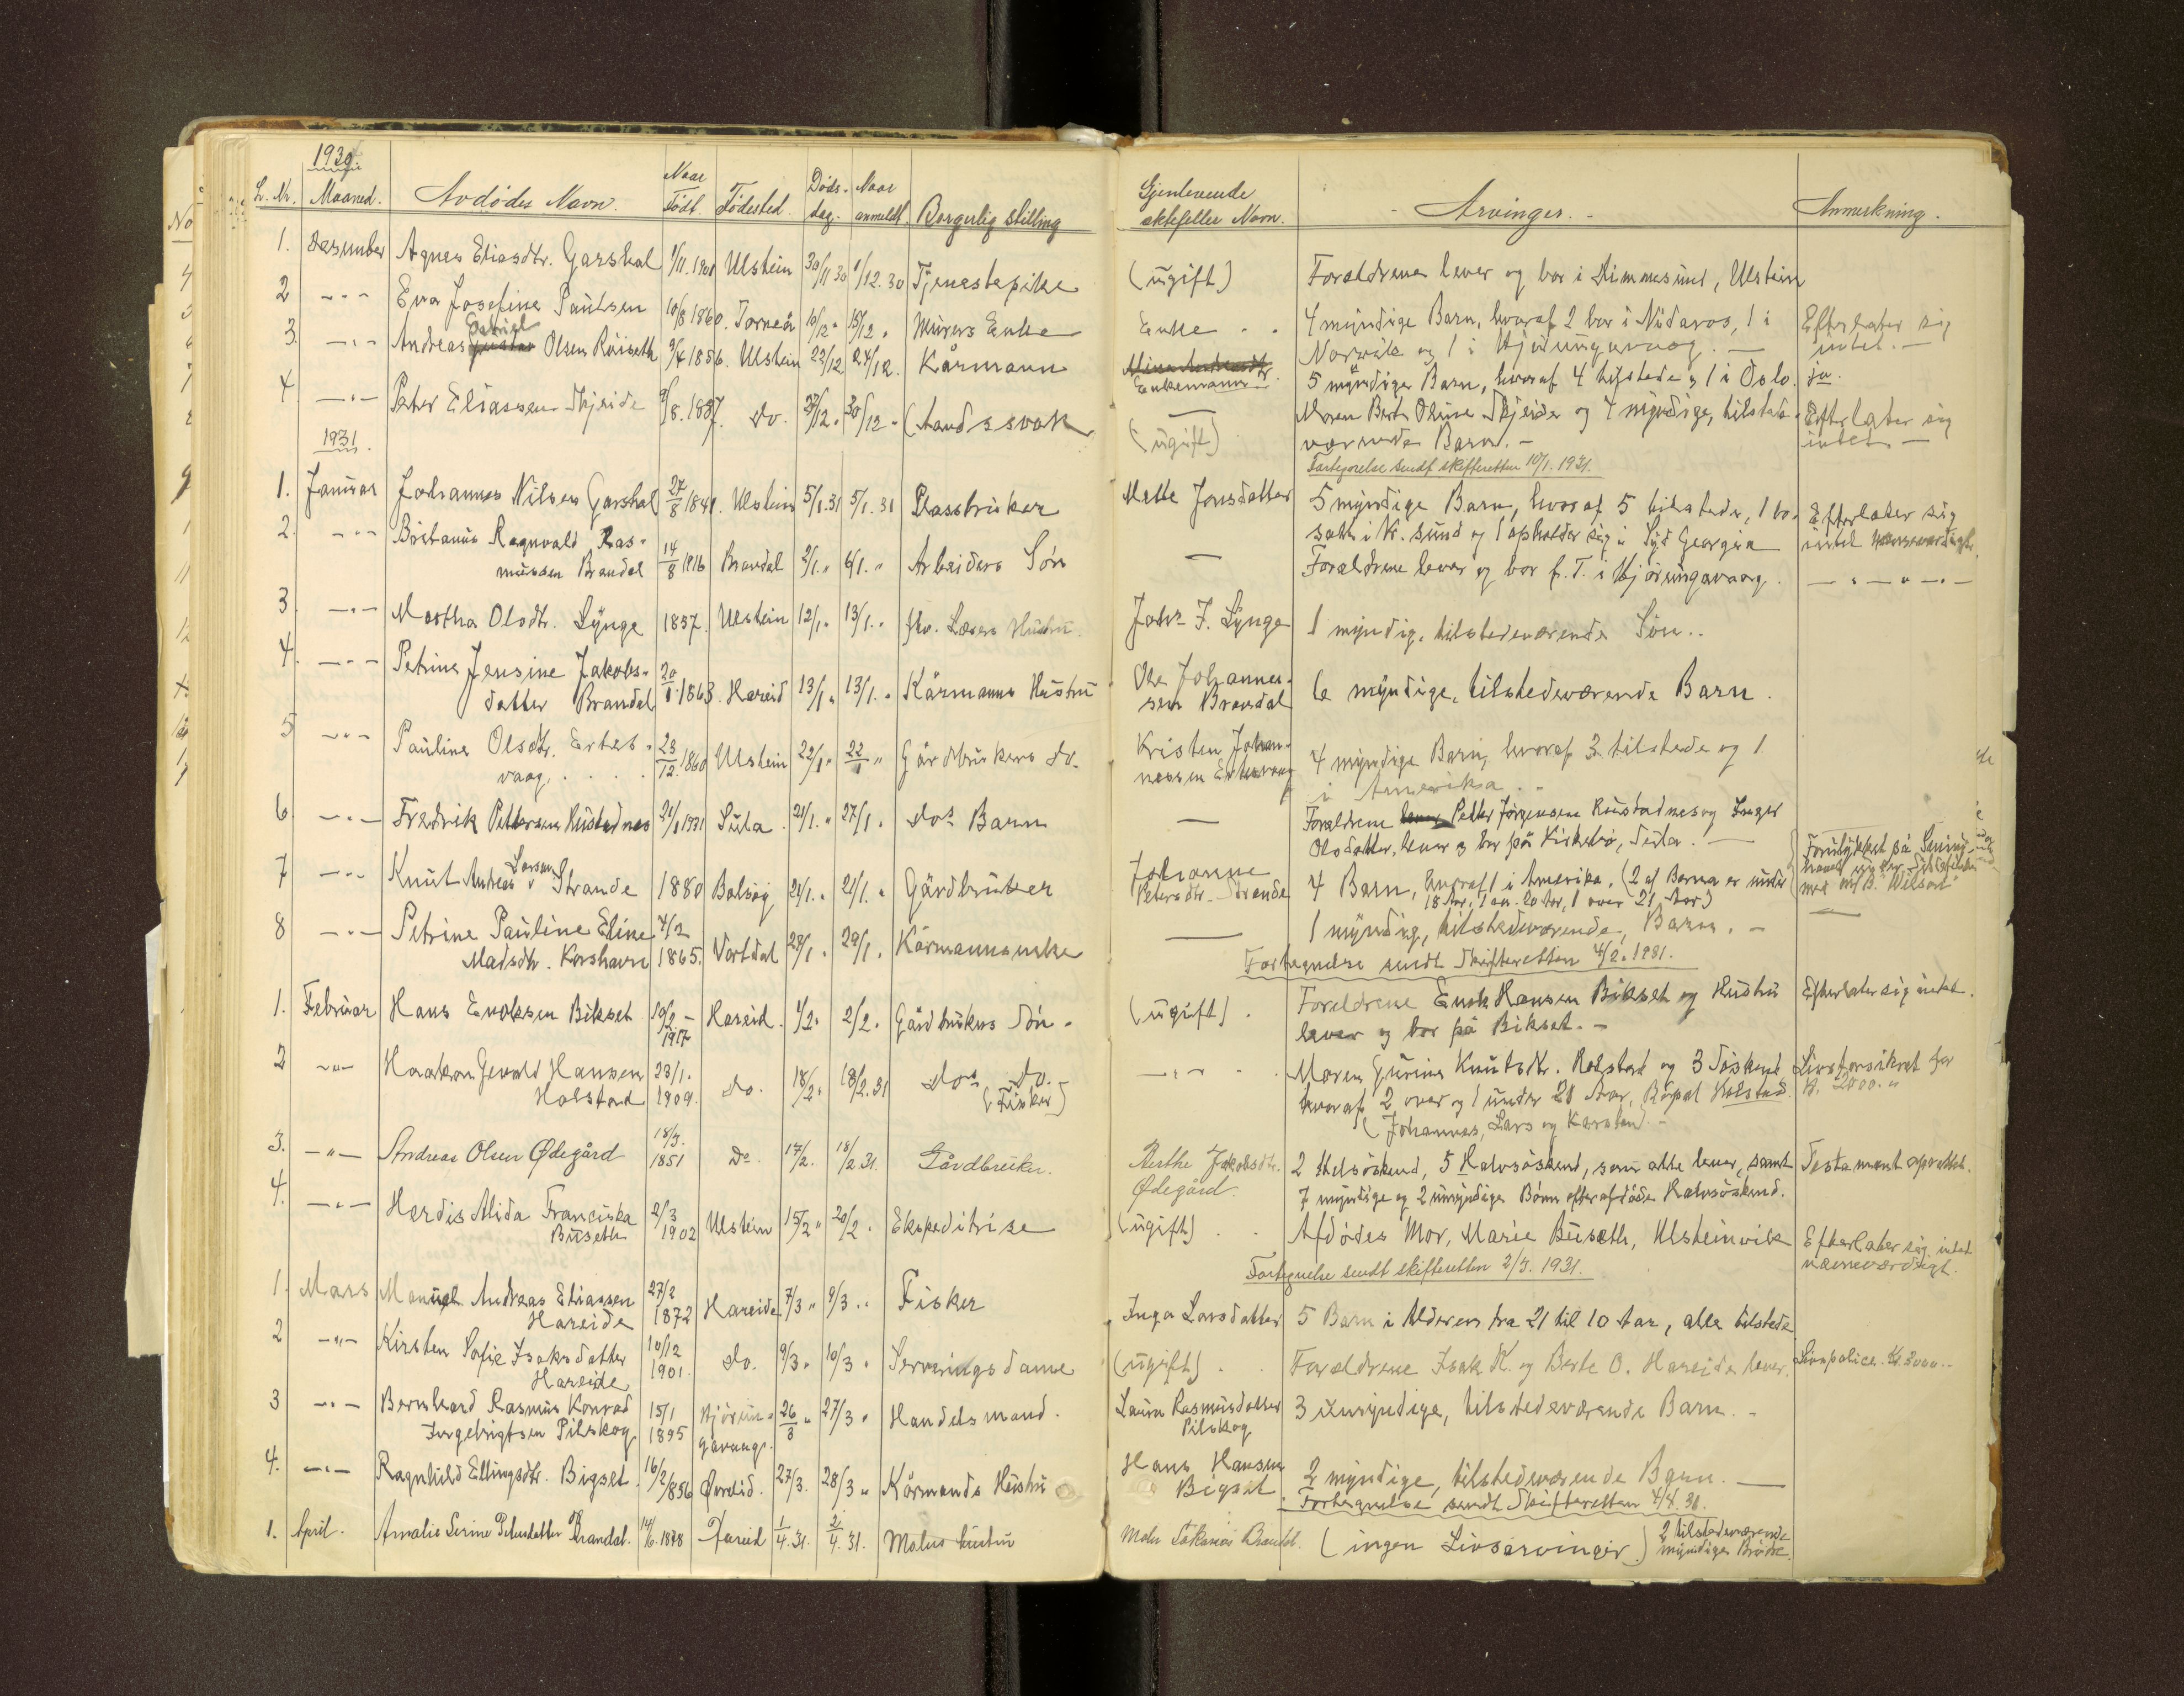 1930.
L. Nr. Maaned. Avdødes Navn. Naar Født. Fødested. Døds-dag. Naar anmeldt. Borgerlig stilling Gjenlevende ektefelles Navn. - Arvinger. - Anmerkning.
1. Desember Agnes Eliasdtr. Garshol 1/11.1901 Ulstein 30/11 30 1/12.30 Tjenestepike (ugift) Forældrene lever og bor i Dimmesund, Ulstein
2 -"- Eva Josefine Paulsen 10/8 1860. Torneå 10/12 " 15/12 " Murers Enke Enke . . 4 myndige Barn, hvoraf 2 bor i Nidaros, 1 i Efterlater sig
Narvik og 1 i Hjørungavaag. — intet. —
3. -"- Andreas Gabriel Olsen Röiseth 9/4 1856. Ulstein 23/12 24/12. Kårmann Enkemann 5 myndige Barn, hvoraf 4 tilstede og 1 i Oslo. do.
4 -"- Peter Eliassen Skjeide 9/8.1887. do. 27/12 " 30/12 " (Aandssvak (ugift) Moren Berte Oline Skjeide og 4 myndige, tilstede- Efterlater sig
værende Barn. - intet -
1931. Fortegnelse sendt skifteretten 10/1. 1931.
1. Januar Johannes Nilsen Garshol 27/8 1841. Ulstein 5/1.31 5/1.31 Plassbruker Mette Jonsdatter 5 myndige Barn, hvoraf 5 tilstede, 1 bo- Efterlater sig
satt i Kr. sund og 1 opholder sig i Syd Georgien intet
2. -"- Britanus Ragnvald Ras-
mussen Brandal 14/8 1916 Brandal 2/1. " 6/1. " Arbeiders Søn — Forældrene lever og bor p.T. i Hjørungavaag. — " — " — " —
3 -"- Martha Olsdtr. Lynge 1857. Ulstein 12/1. 13/1. " Hustru. Johs J. Lynge 1 myndig, tilstedeværende Søn..
4 -"- Petrine Jensine Jakobs-
datter Brandal 20/1 1863. Hareid 13/1 " 13/1. " Kårmanns Hustru Ole Johannes-
sen Brandal 6 myndige, tilstedeværende Barn.
5 -"- Pauline Olsdtr. Ertes-
vaag. . . . . 23/12.1860 Ulstein 22/1 " 22/1 " Gårdbrukers do. Kristen Johan-
nessen Ertesvaag 4 myndige Barn, hvoraf 3 tilstede og 1
i Amerika . .
6 -"- Fredrik Pettersen Rustadnes 21/1 1931 Sula 21/1. " 27/1. dos Barn — Forældrene Petter Jørgensen Rustadnes og Inger
Olsdatter, lever og bor på Kirkebø, Sula. —
7 -"- Knut Andreas Larsen Strande 1880 Balsøy 21/1. " 21/1. " Gårdbruker Johanne
Petersdtr. Strande 4 Barn, hvoraf 1 i Amerika. (2 af Barna er under
18 Aar, 1 ca. 20 Aar, 1 over 21 Aar) Forulykket på
med M/B. "Wilson"
8 -"- Petrine Pauline Eline
Madsdtr. Korshavn 4/2 1865. Vartdal 28/1. " 29/1. Kårmannsenke — 1 myndig, tilstedeværende, Barn. -
Fortegnelse sendt Skifteretten 4/2. 1931.
1. Februar Hans Enoksen Bikset 10/2 - 1917 Hareid. 1/2. 2/2. Gårdbrukers Søn. (ugift) . Foreldrene Enok Hansen Bikset og Hustru Efterlater sig intet.
lever og bor på Bikset. -
2 -"- Haakon Gerald Hansen
Holstad 23/1. 1909. do. 18/2. 18/2.31 dos do.
(Fisker) -"- Moren Gurine Knutsdtr. Holstad og 3 Søskend Livsforsikret for
hvoraf 2 over og 1 under 21 Aar, Bopæl Holstad. kr. 2000."
(Johannes, Lars og Karsten) -
3. -"- Andreas Olsen Ødegård 18/3. 1851 Do. 17/2. 18/2.31. Gårdbruker. Berthe Jakobsdtr.
Ødegård. 2 Helsøskend, 5 Halvsøskend, som alle lever, samt Testament oprettet.
7 myndige og 2 umyndige Børn efter afdøde Halvsøskend.
4. -"- Herdis Alida Franciska
Buseth 2/3 1902 Ulstein 15/2 " 20/2 . Ekspeditrise (ugift) . . Afdødes Mor, Marie Buseth, Ulsteinvik Efterlater sig intet
nævneværdigt.
Fortegnelse sendt skifteretten 2/3. 1931.
1. Mars Manuel Andreas Eliassen
Hareide 27/2 1872 Hareide 7/3 " 9/3 . . Fisker Inga Larsdatter 5 Barn i Alderen fra 21 til 10 Aar, alle tilstede
2 -"- Kirsten Sofie Isaksdatter
Hareide 10/12 1901. do. 9/3 " 10/3 " Serveringsdame (ugift) . . Forældrene Isak K. og Berte O. Hareide lever. Livspolice. Kr. 3000.-
3 -"- Bernhard Rasmus Konrad
Ingebrigtsen Pilskog 15/1 1895 Hjørun-
gavaag. 26/3 " 27/3 " Handelsmand. Laura Rasmusdatter
Pilskog 3 umyndige, tilstedeværende Barn. -
4. -"- Ragnhild Ellingsdtr. Bigset. 16/2/1856 Ørstid. 27/3. 28/3 " Kårmands Hustru Hans Hansen
Bigset. 2 myndige, tilstedeværende Barn. —
Fortegnelse sendt Skifteretten 4/4. 31.
1. April. Amalie Serine Petersdatter Brandal. 14/6.1878 Hareid 1/4.31. 2/4.31. Malers hustru Maler Sakarias Brandal. (ingen Livsarvinger) 2 tilstedeværende
myndige Brødre.